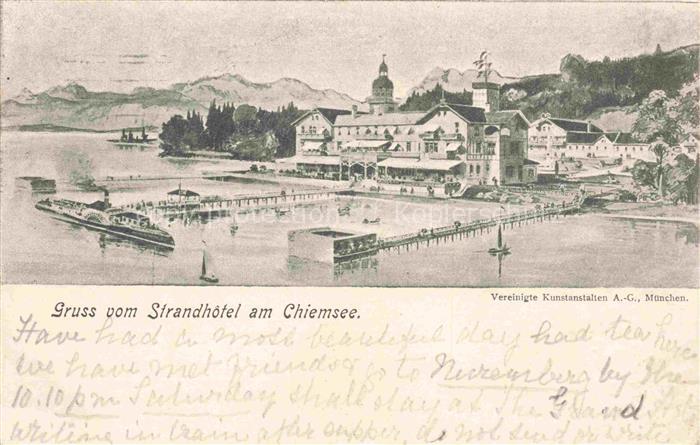 Vereinigte Kunstanstalten A.-G., München.
Gruss vom Strandhôtel am Chiemsee.
Have had a most beautiful day had tea here
We have met friends & go to Nuremburg by the
10.10 pm Saturday shall stay at The Grand
writing in train after supper, do not send or write